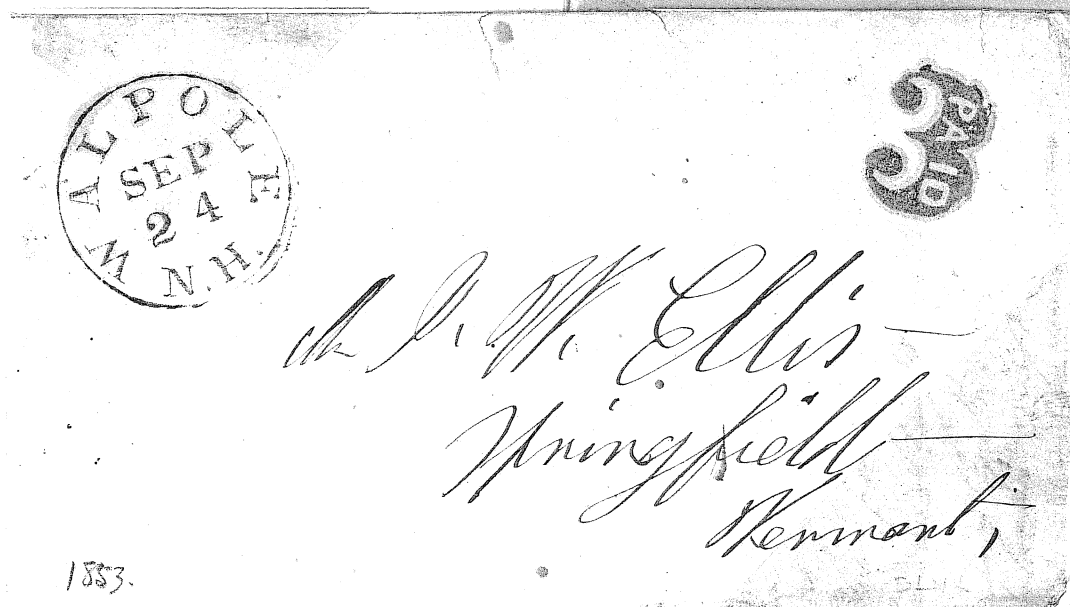 WALPOLE
SEP
24
N.H.
3
PAID
W. Ellis
Springfield
Vermont,
1853.